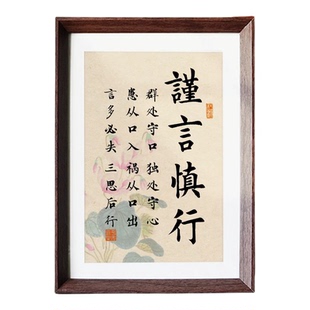 謹言慎行
群处守口 独处守心
患从口入 祸从口出
言多必失 三思后行